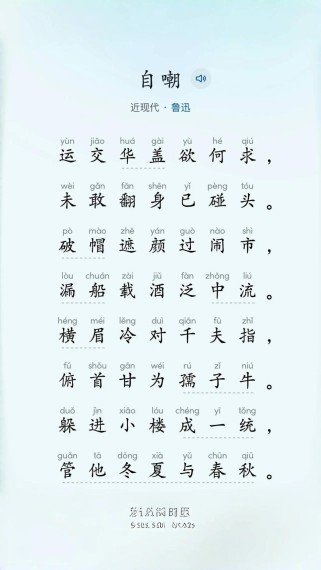 自嘲
近现代·鲁迅
yùn jiāo huá gài yù hé qiú
运交华盖欲何求，
wèi gǎn fān shēn yǐ pèng tóu
未敢翻身已碰头。
pò mào zhē yán guò nào shì
破帽遮颜过闹市，
lòu chuán zài jiǔ fàn zhōng liú
漏船载酒泛中流。
héng méi lěng duì qiān fū zhǐ
横眉冷对千夫指，
fǔ shǒu gān wéi rú zǐ niú
俯首甘为孺子牛。
duǒ jìn xiǎo lóu chéng yī tǒng
躲进小楼成一统，
guǎn tā dōng xià yǔ chūn qiū
管他冬夏与春秋。